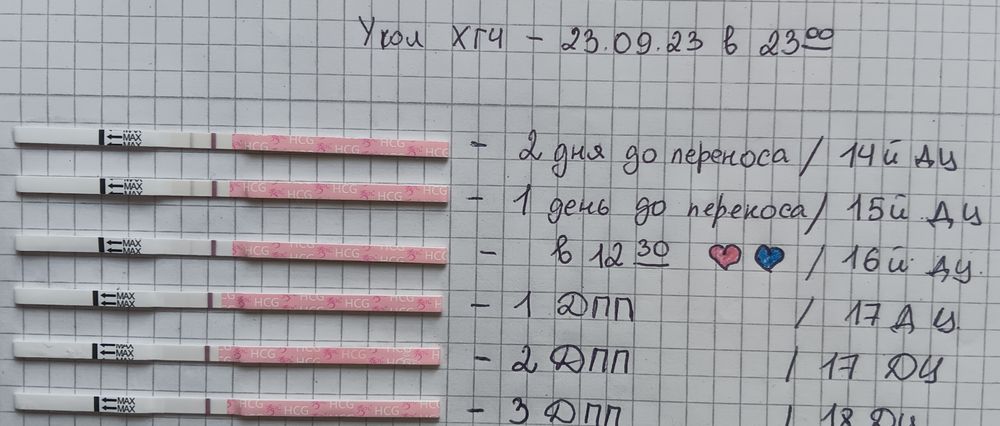 Укол ХГЧ - 23.09.23 в 23 00
MAX HCG HCG HCG - 2 дня до переноса / 14й ДЦ
MAX HCG HCG HCG - 1 день до переноса / 15й ДЦ
MAX HCG HCG HCG - в 12 30 / 16й ДЦ.
MAX HCG HCG HCG - 1 ДПП / 17 ДЦ
MAX HCG HCG HCG - 2 ДПП / 17 ДЦ
MAX HCG HCG HCG - 3 ДПП / 18 ДЦ